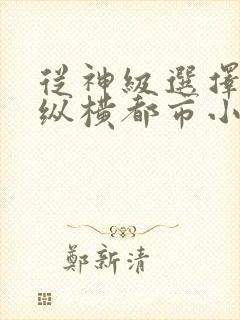 從神級選擇
纵横都市小
鄭新清